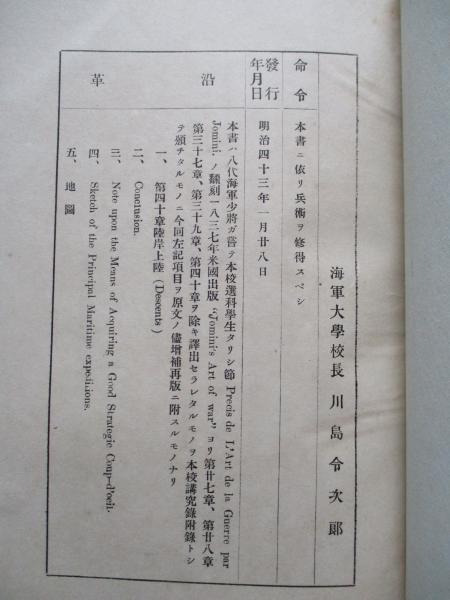 海軍大學校長 川島令次郎
命令 本書ニ依リ兵術ヲ修得スベシ
發行年月日 明治四十三年一月廿八日
沿革
本書ハ八代海軍少將ガ嘗テ本校選科學生タリシ節 Precis de L'Art de la Guerre par
Jomini. ノ飜刻一八三七年米國出版 "Jomini's Art of war" ヨリ第廿七章、第廿八章
第三十七章、第三十九章、第四十章ヲ除キ譯出セラレタルモノヲ本校講究錄附錄トシ
テ頒チタルモノニ今回左記項目ヲ原文ノ儘增補再版ニ附スルモノナリ
一、第四十章陸岸上陸 (Descents)
二、Conclusion.
三、Note upon the Means of Acquiring a Good Strategic Coup-d'oeil.
四、Sketch of the Principal Maritime expeditions.
五、地圖